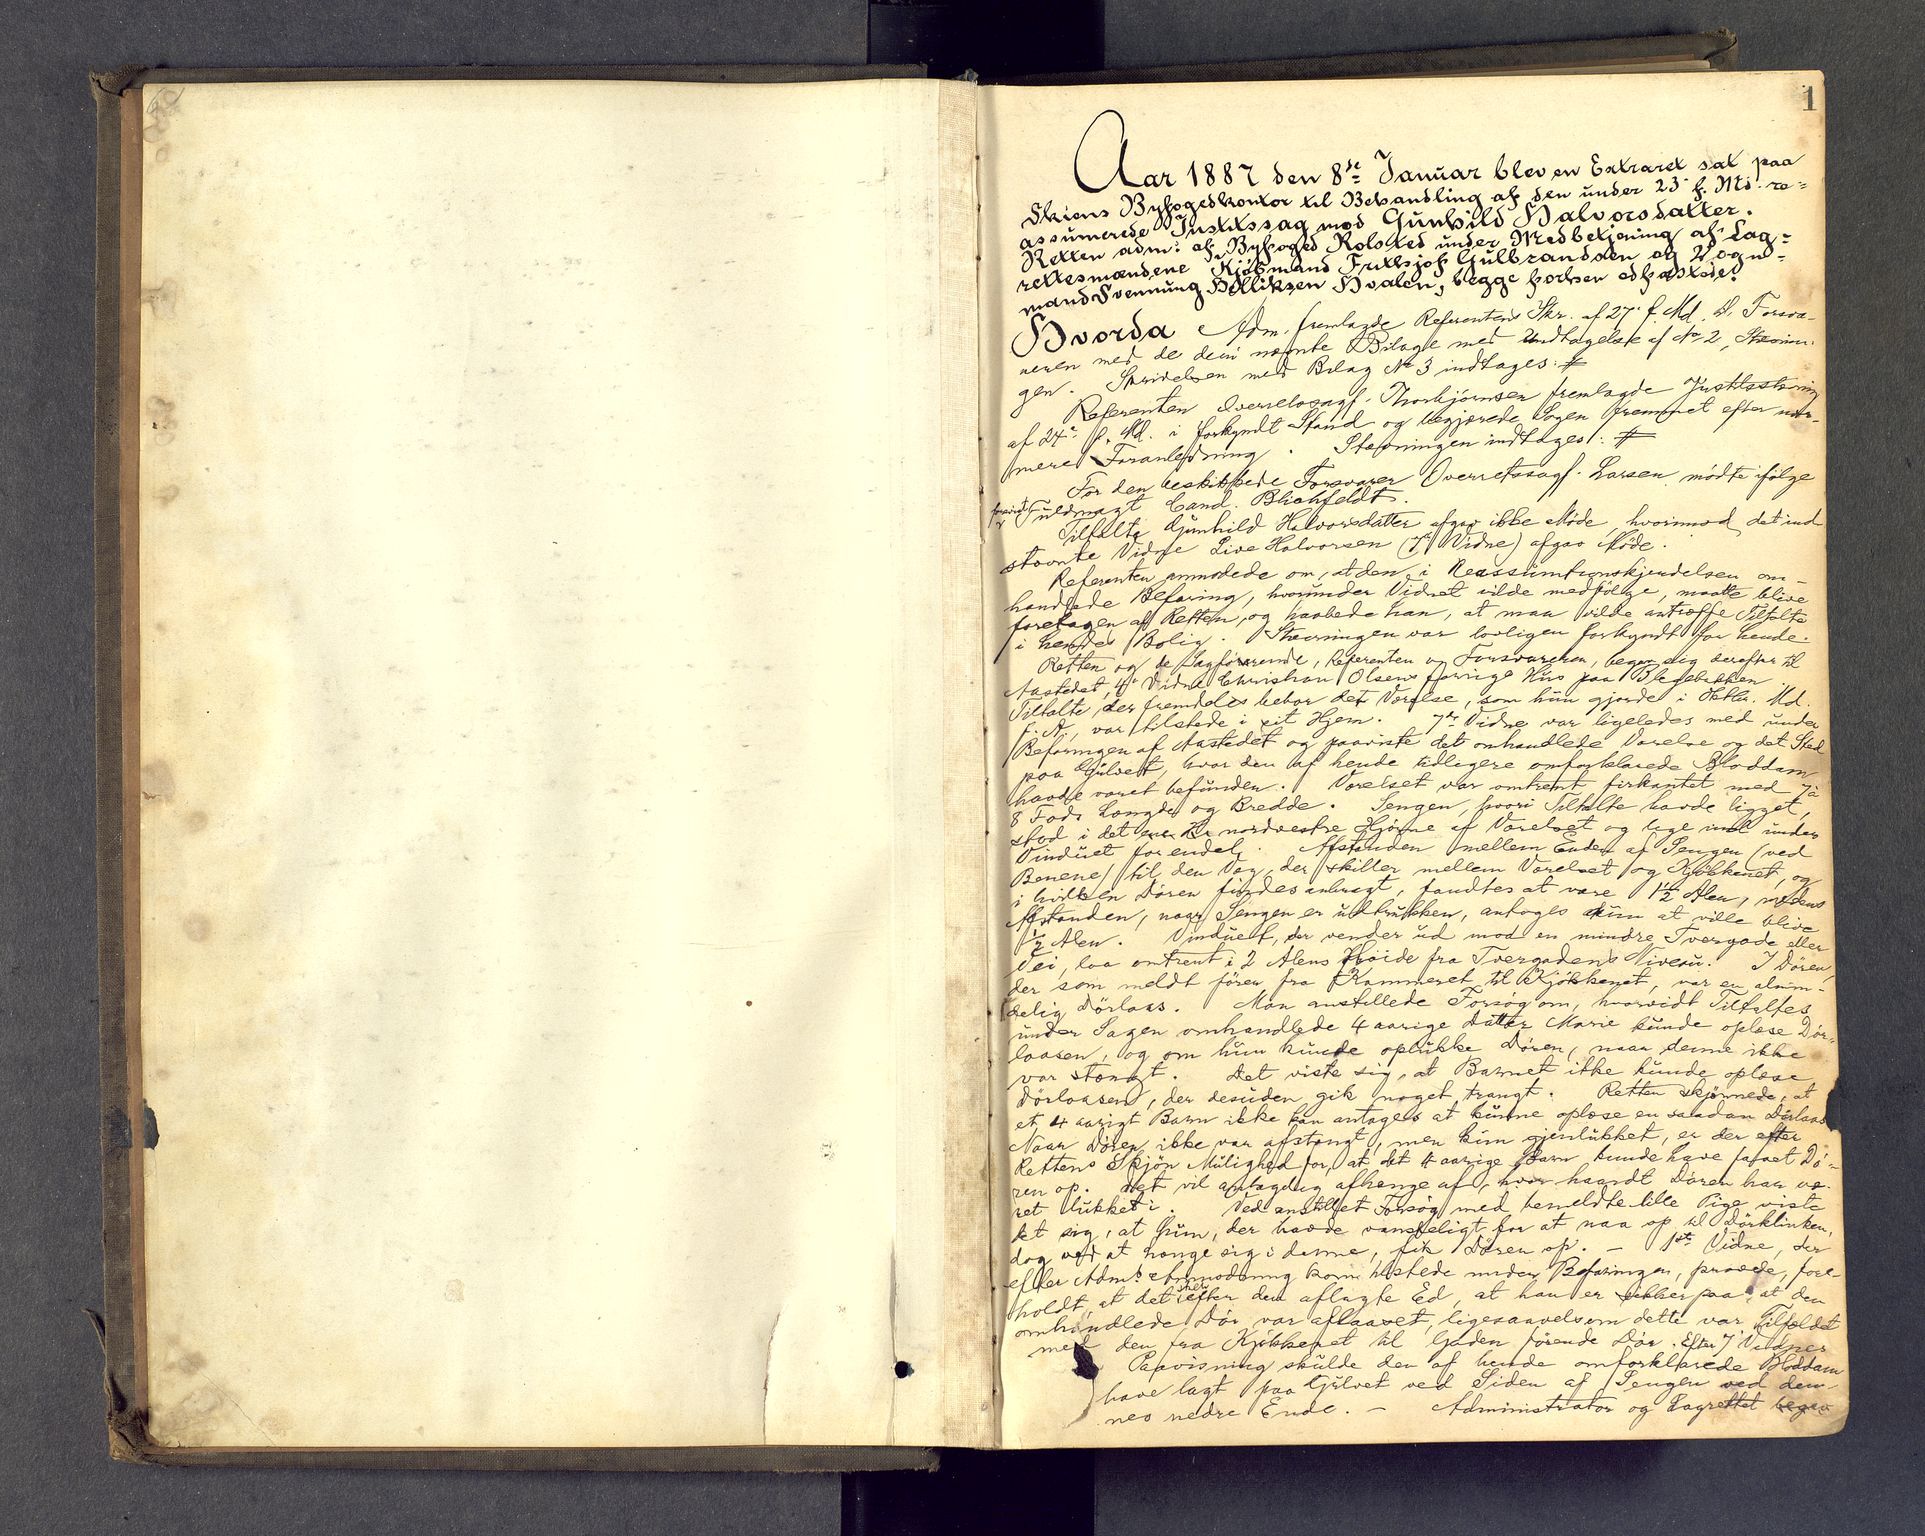 1
Aar 1887 den 8de Januar blev en Extraret sat paa
Skiens Byfogedkontor til Behandling af den under 23 f. Md. re=
assumerede Justitssag mod Gunhild Halvorsdatter.
Retten adm: af Byfoged Rolsted under Medbetjening af Lag=
rettesmændene Kjøbmand Frithjof Gulbrandsen og Vogn=
mand Svennung Hvalen, begge forhen edfæstede.
Hvorda Adm. fremlagde Referentens Skr. af 27 f. Md. til Forsva-
reren med de deri nævnte Bilage med Undtagelse af No 2, Stævnin-
gen. Skrivelsen med Bilag No 3 indtages: #
Referenten Overretssagf. Thorbjørnsen fremlagde Justitsstævning
af 24de f. Md. i forkyndt Stand og begjærede Sagen fremmet efter nær-
mere Foranledning. Stævningen indtages: #
For den beskikkede Forsvarer Overretssagf. Larsen mødte ifølge
Fuldmagt Cand. Blichfeldt.
Tiltalte Gunhild Halvorsdatter afgav ikke Møde, hvorimod det ind-
stævnte Vidne Live Halvorsen (7de Vidne) afgav Møde.
Referenten anmodede om, at den i Reassumtionskjendelsen om-
handlede Befaring, hvorunder Vidnet vilde medfølge, maatte blive
foretagen af Retten, og haabede han, at man vilde antræffe Tiltalte
i hendes Bolig. Stævningen var lovligen forkyndt for hende.
Retten og de Sagførende, Referenten og Forsvareren, begav sig derefter til
Aastedet, 4de Vidne Christian Olsens forrige Hus paa Blegebakken
Tiltalte, der fremdeles bebor det Værelse, som hun gjorde i Oktbr. Md.
f. A., var tilstede i sit Hjem. 7de Vidne var ligeledes med under
Befaringen af Aastedet og paaviste det omhandlede Værelse og det Sted
paa Gulvet, hvor den af hende tidligere omforklarede Bloddam
havde været befunden. Værelset var omtrent firkantet med 7 à
8 Fods Længde og Bredde. Sengen, hvori Tiltalte havde ligget,
stod i det nordvestre Hjørne af Værelset og lige ind under
Vinduet for endel. Afstanden mellem Enden af Sengen (ved
Benene) til den Væg, der skiller mellem Værelset og Kjøkkenet, og
i hvilken Døren findes anbragt, fandtes at være 1 1/2 Alen, medens
Afstanden, naar Sengen er udtrukken, antoges kun at ville blive
1/2 Alen. Vinduet, der vender ud mod en mindre Tvergade eller
Vei, laa omtrent i 2 Alens Høide fra Tvergadens Niveau. I Døren,
der som meldt fører fra Kammeret til Kjøkkenet, var en almin-
delig Dørlaas. Man anstillede Forsøg om, hvorvidt Tiltaltes
under Sagen omhandlede 4 aarige Datter Marie kunde oplaase Dør-
laasen, og om hun kunde oplukke Døren, naar denne ikke
var stængt. Det viste sig, at Barnet ikke kunde oplaase
Dørlaasen, der desuden gik noget trangt. Retten skjønnede, at
et 4 aarigt Barn ikke kan antages at kunne oplaase en saadan Dørlaas
Naar Døren ikke var afstængt, men kun gjenlukket, er der efter
Rettens Skjøn Mulighed for, at det 4 aarige Barn kunde have faaet Dø-
ren op. Det vil antagelig afhænge af, hvor haardt Døren har væ-
ret lukket i. Ved anstillet Forsøg med bemeldte lille Pige viste
det sig, at hun, der havde vanskeligt for at naa op til Dørklinken,
dog ved at hænge sig i denne, fik Døren op. – 1ste Vidne, der
efter Adm.s Anmodning kom tilstede under Befaringen, provede, fore-
holdt, at det skeer efter den aflagte Ed, at han er sikker paa, at den
omhandlede Dør var aflaaset, ligesaavelsom dette var Tilfældet
med den fra Kjøkkenet til Gaden førende Dør. Efter 7 Vidnes
Paavisning skulde den af hende omforklarede Bloddam
have lagt paa Gulvet ved Siden af Sengen ved den-
nes nedre Ende. – Administrator og Lagrettet begav